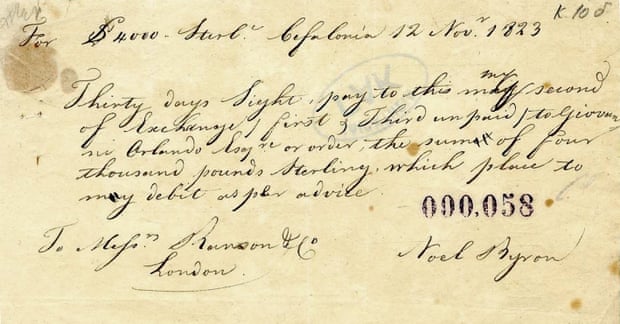 K 10 δ.
For £ 4000 - Sterlᵍ Cefalonia 12 Novʳ 1823
Thirty days Sight, pay to this my second
of Exchange, (first & Third unpaid) to Giovan
ni Orlando Esqʳᵉ or order, the sum of four
thousand pounds Sterling, which place to
my debit as per advice.
000,058
To Messʳˢ Ranson & Co
London.
Noel Byron